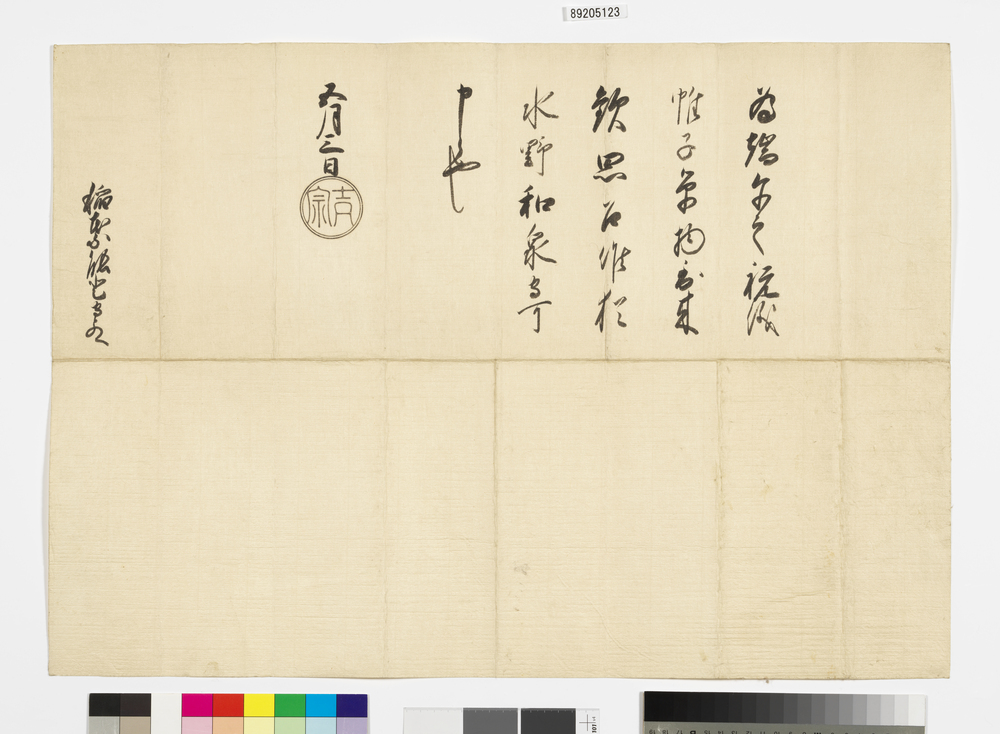 89205123
為端午之祝儀
帷子単物到来
歓思召候猶
水野和泉守可
申也
五月三日
吉宗
稲葉能登守とのへ